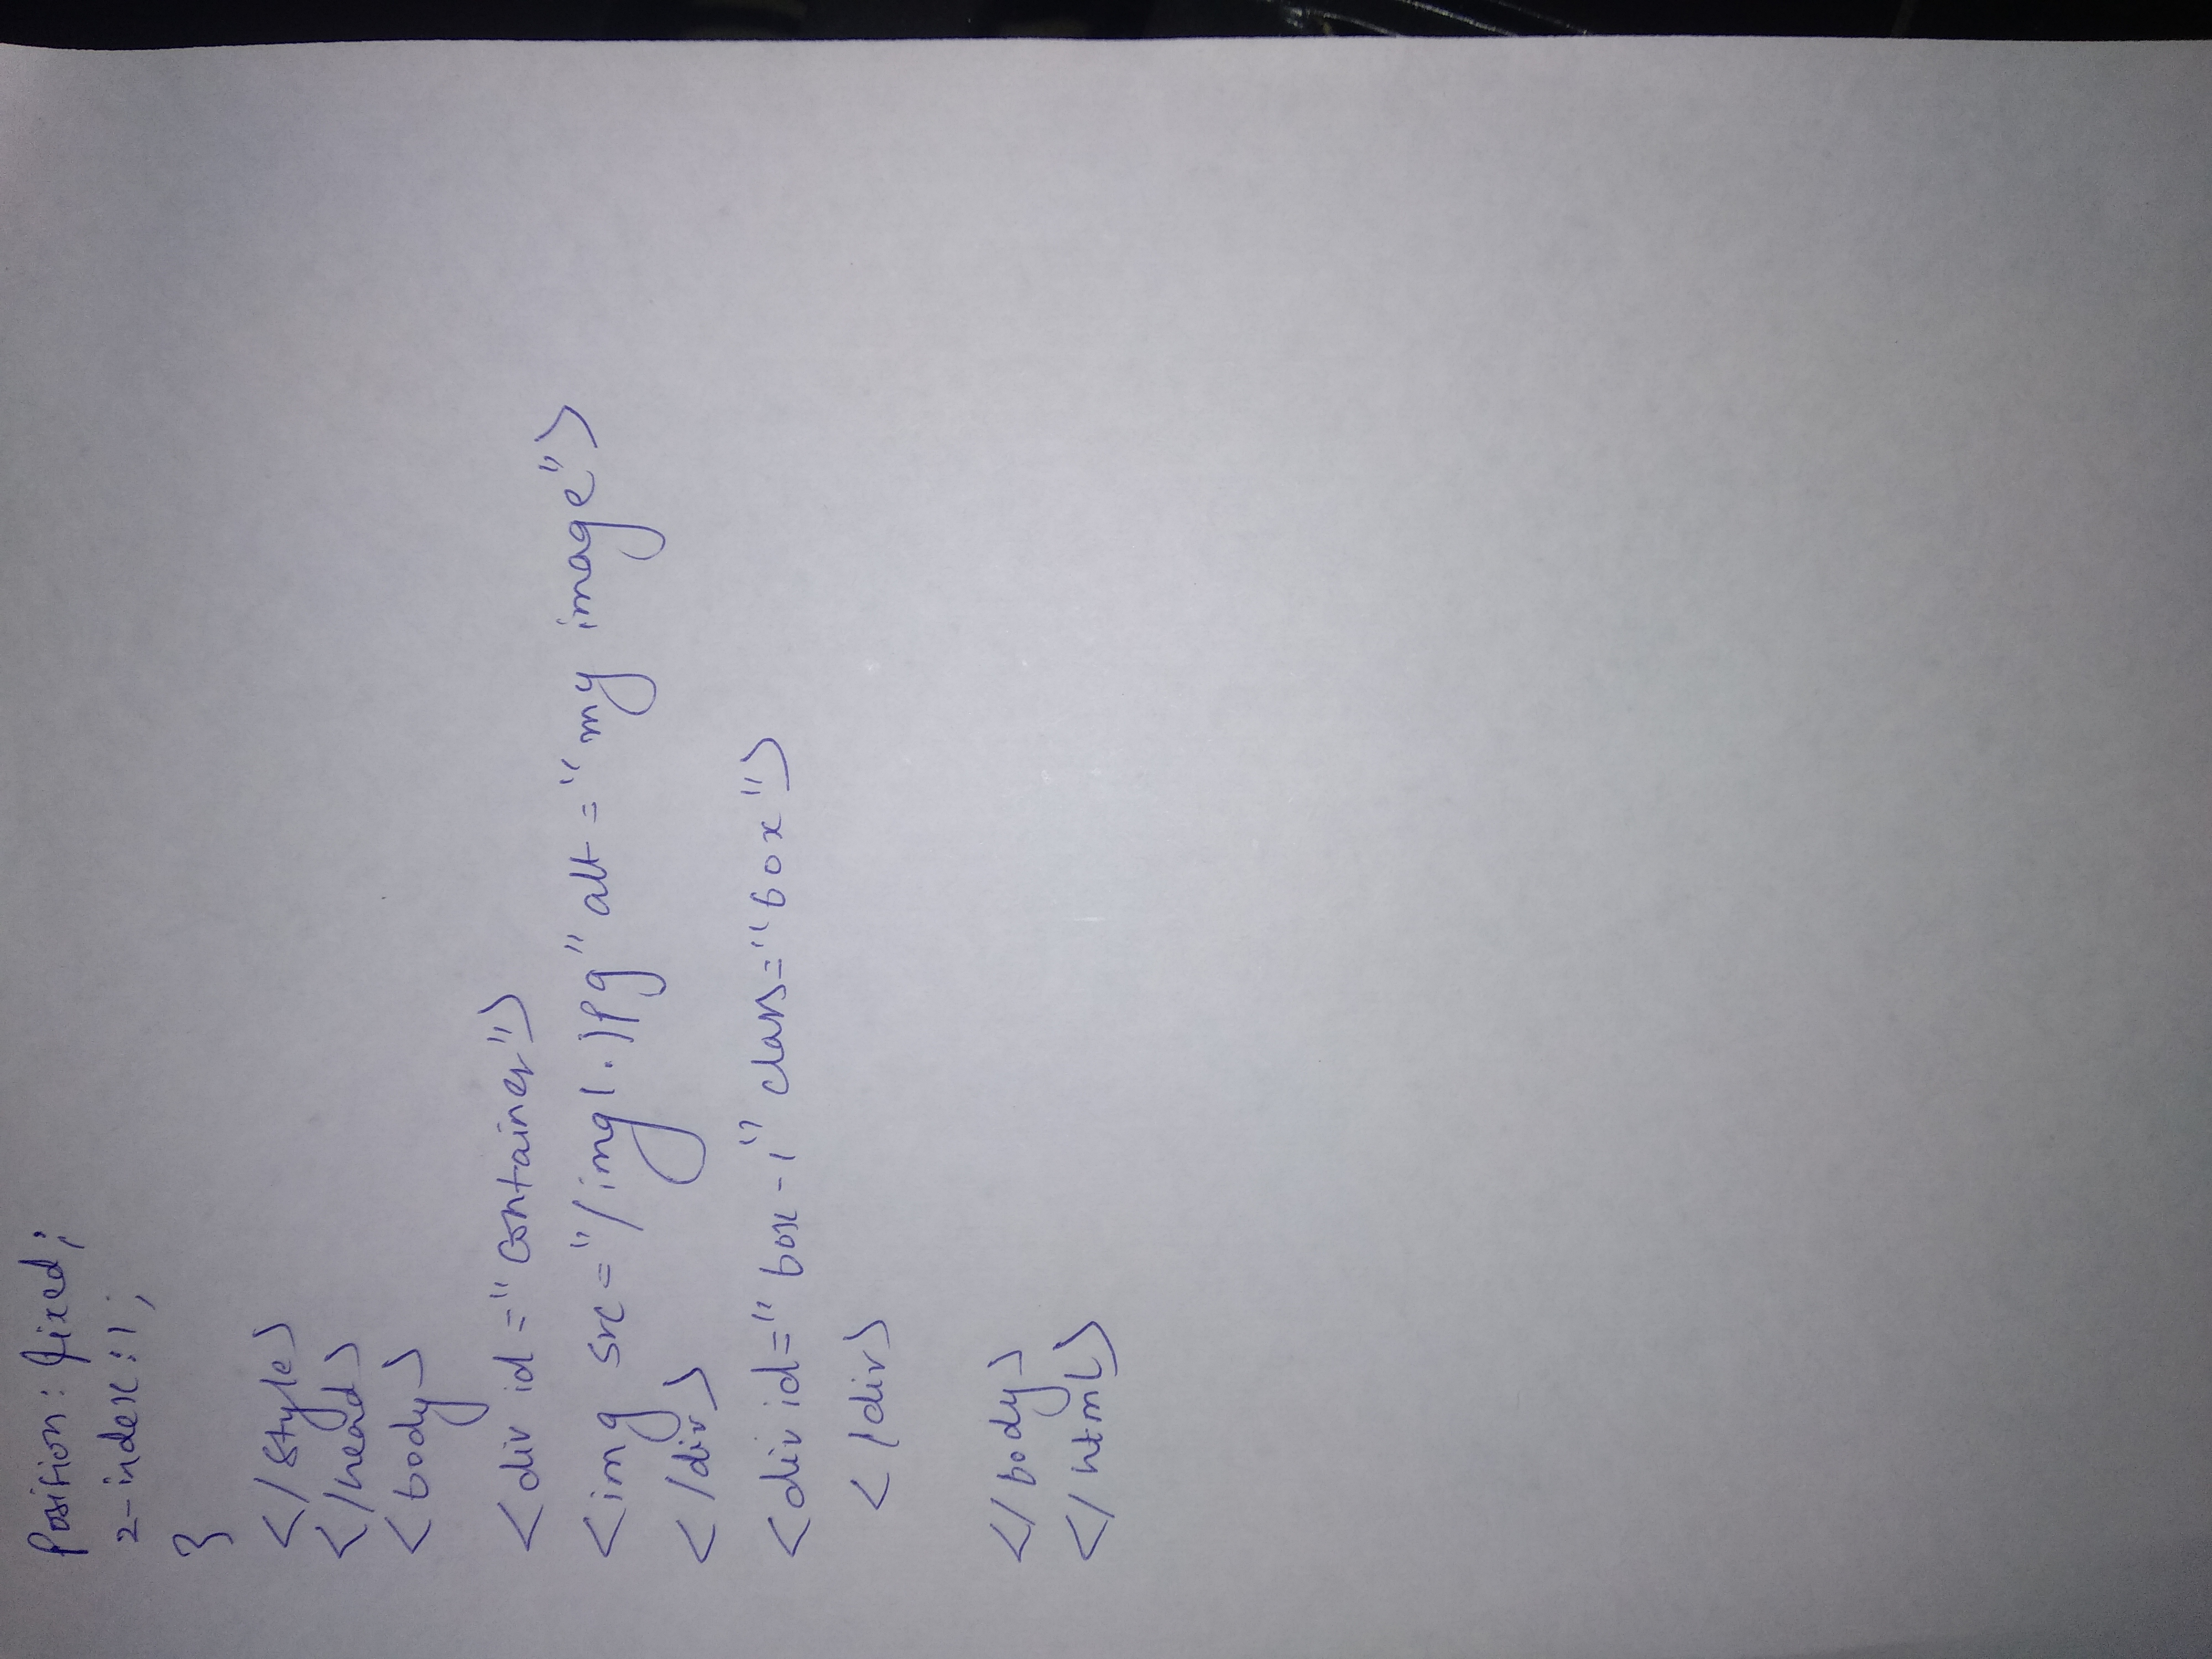 position: fixed;
z-index:1;
}
</style>
</head>
<body>
<div id="container">
<img src="/img1.jpg" alt="my image">
</div>
<div id="box-1" class="box">
</div>
</body>
</html>